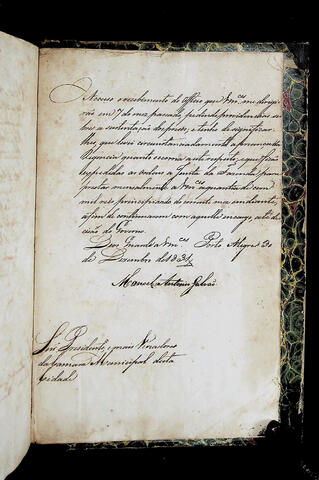 Accuso o recebimento do officio que V.m.ces me dirigi-
rão em 7 do mez passado, pedindo providencias so-
bre a sustentação dos prezos, e tenho de significar
lhes, que levei circunstanciadamente a prezença da
Regencia quanto occorria a este respeito, e que ficão
expedidas as ordens a Junta da Fazenda para
prestar mensalmente a V.m.ces a quantia de cem
mil reis principiada do corrente mez em diante,
a fim de continuarem com aquelle encargo, até de-
cisão do Governo.
Deos Guarde a V.m.ces Porto Alegre 20
de Dezembro de 1831
Manoel Antonio Galvão
Snr.s Presidente, e mais Vereadores
da Camara Municipal desta
Cidade